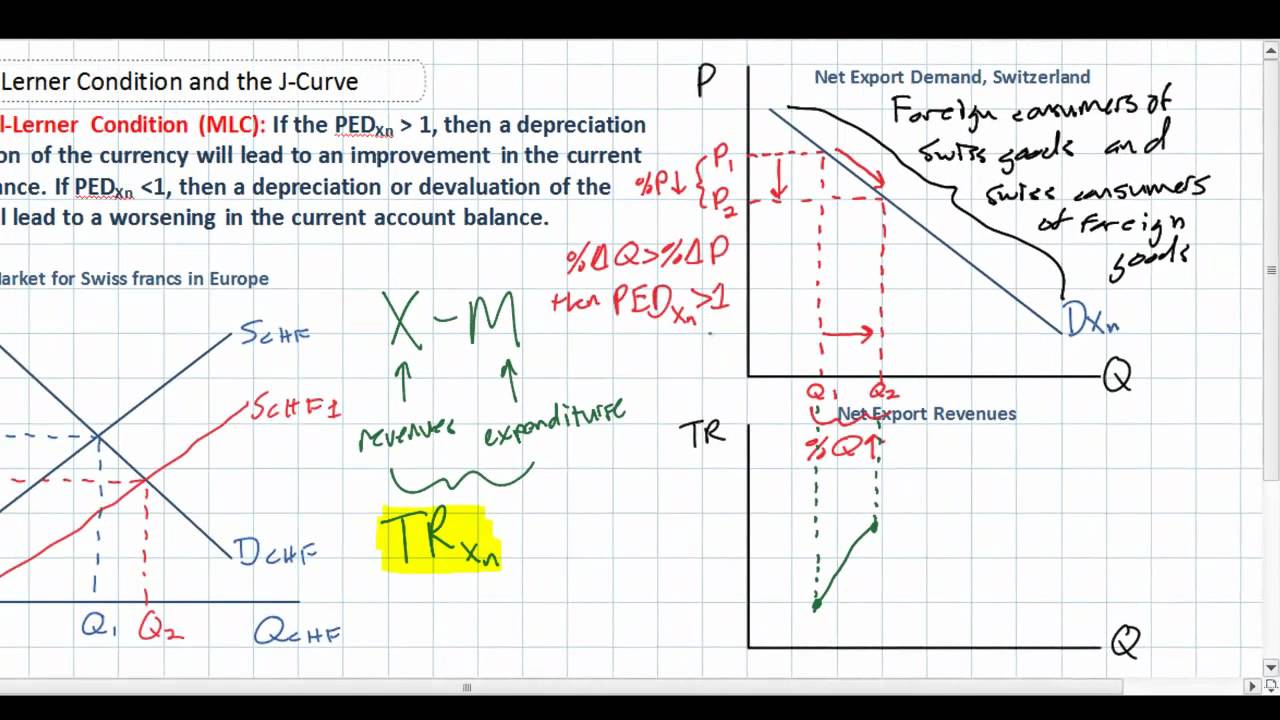 Lerner Condition and the J-Curve
l-Lerner Condition (MLC): If the PEDXn > 1, then a depreciation
on of the currency will lead to an improvement in the current
ance. If PEDXn <1, then a depreciation or devaluation of the
l lead to a worsening in the current account balance.
Market for Swiss francs in Europe
SCHF
SCHF1
DCHF
Q1
Q2
QCHF
X - M
revenues
expenditurse
TRXn
P
Net Export Demand, Switzerland
Foreign consumers of
swiss goods and
swiss consumers
of foreign
goods
P1
%P↓
P2
%ΔQ>%ΔP
then PEDXn>1
DXn
Q
Q1
Q2
Net Export Revenues
TR
%Q↑
Q